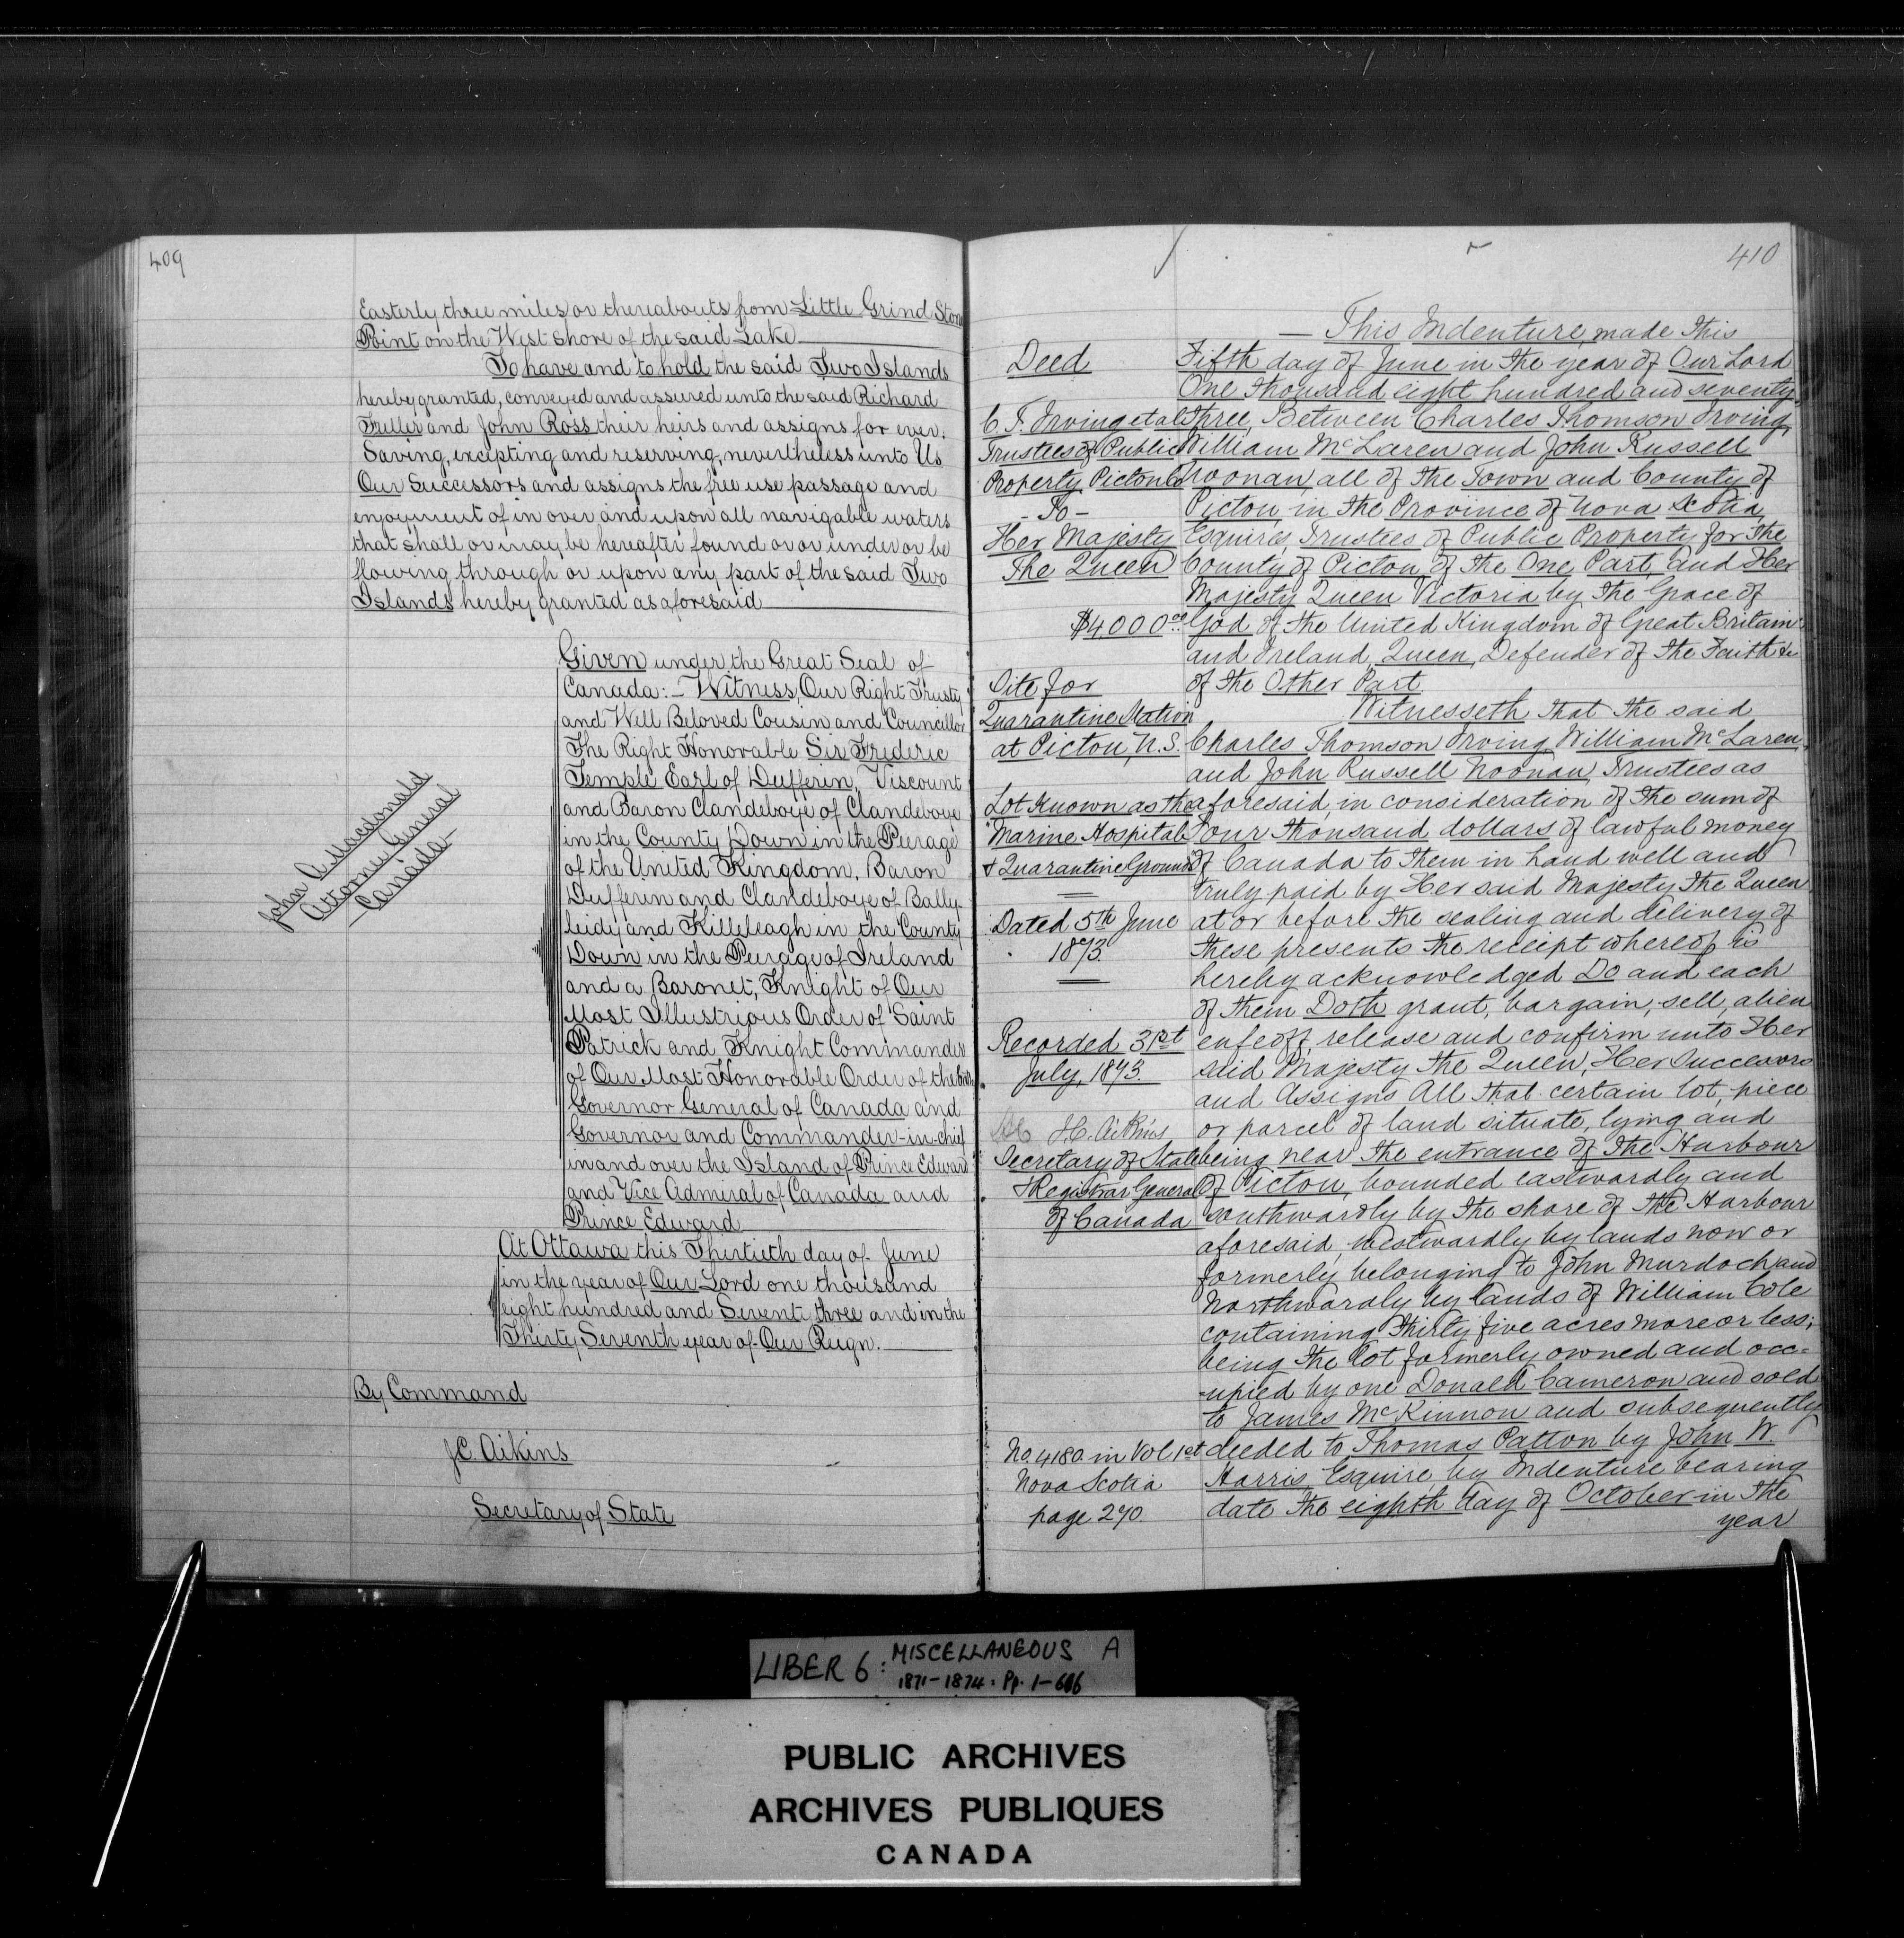 409
Easterly three miles or thereabouts from Little Grind Stone
Point on the West shore of the said Lake
To have and to hold the said Two Islands
hereby granted, conveyed and assured unto the said Richard
Fuller and John Ross their heirs and assigns for ever.
Saving, excepting and reserving, nevertheless unto Us
Our Successors and assigns the free use passage and
enjoyment of in over and upon all navigable waters
that shall or may be hereafter found or or under or be
flowing through or upon any part of the said Two
Islands hereby granted as aforesaid
Given under the Great Seal of
Canada:- Witness, Our Right Trusty
and Well Beloved Cousin and Councillor
The Right Honorable Sir Frederic
Temple Earl of Dufferin, Viscount
and Baron Clandeboye of Clandeboye
in the County Down in the Peerage
of the United Kingdom, Baron
Dufferin and Clandeboye of Bally-
leidy and Killeleagh in the County
Down in the Peerage of Ireland
and a Baronet, Knight of Our
Most Illustrious Order of Saint
Patrick and Knight Commander
of Our Most Honorable Order of the Bath
Governor General of Canada and
Governor and Commander-in-chief
in and over the Island of Prince Edward
and Vice Admiral of Canada and
Prince Edward
John A Macdonald
Attorney General
Canada
At Ottawa this Thirtieth day of June
in the year of Our Lord one thousand
eight hundred and Seventy three and in the
Thirty Seventh year of Our Reign.
By Command
J C. Aikins
Secretary of State
410
Deed
C. T. Irving et al
Trustees of Public
Property Pictou Co
- To -
Her Majesty
The Queen
$4000.00
Site for
Quarantine Station
at Pictou, N.S.
Lot Known as the
Marine Hospital
& Quarantine Ground
Dated 5th June
1873
Recorded 31st
July, 1873.
J.C. Aikins
Secretary of State
& Registrar General
of Canada
No. 4180 in Vol 1st
Nova Scotia
page 270.
— This Indenture, made this
Fifth day of June in the year of Our Lord
One thousand eight hundred and seventy
three, Between Charles Thomson Irving,
William McLaren and John Russell
Noonan, all of the Town and County of
Pictou, in the Province of Nova Scotia,
Esquires, Trustees of Public Property for the
County of Pictou of the One Part, and Her
Majesty Queen Victoria by the Grace of
God of the United Kingdom of Great Britain
and Ireland, Queen, Defender of the Faith &c
of the Other Part.
Witnesseth that the said
Charles Thomson Irving, William McLaren,
and John Russell Noonan, Trustees as
aforesaid, in consideration of the sum of
Four thousand dollars of lawful money
of Canada to them in hand well and
truly paid by Her said Majesty the Queen
at or before the sealing and delivery of
these presents the receipt whereof is
hereby acknowledged Do and each
of them Doth grant, bargain, sell, alien
enfeoff, release and confirm unto Her
said Majesty the Queen, Her Successors
and Assigns All that certain lot, piece
or parcel of land situate, lying and
being near the entrance of the Harbour
of Pictou, bounded eastwardly and
southwardly by the shore of the Harbour
aforesaid, westwardly by lands now or
formerly belonging to John Murdoch and
Northwardly by lands of William Cole
containing thirty five acres more or less;
being the lot formerly owned and occ=
=upied by one Donald Cameron and sold
to James McKinnon and subsequently
deeded to Thomas Patton by John W
Harris, Esquire, by Indenture bearing
date the eighth day of October in the
year
LIBER 6: MISCELLANEOUS A
1871-1874: Pp. 1-606
PUBLIC ARCHIVES
ARCHIVES PUBLIQUES
CANADA